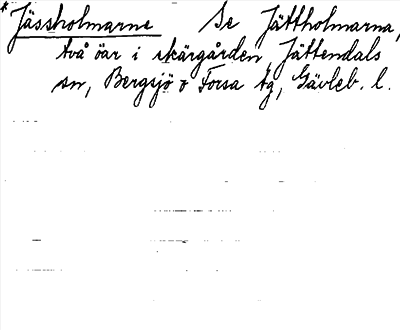 *Jässholmarne Se Jättholmarna,
två öar i skärgården, Jättendals
sn, Bergsjö o Forsa tg, Gävleb. l.